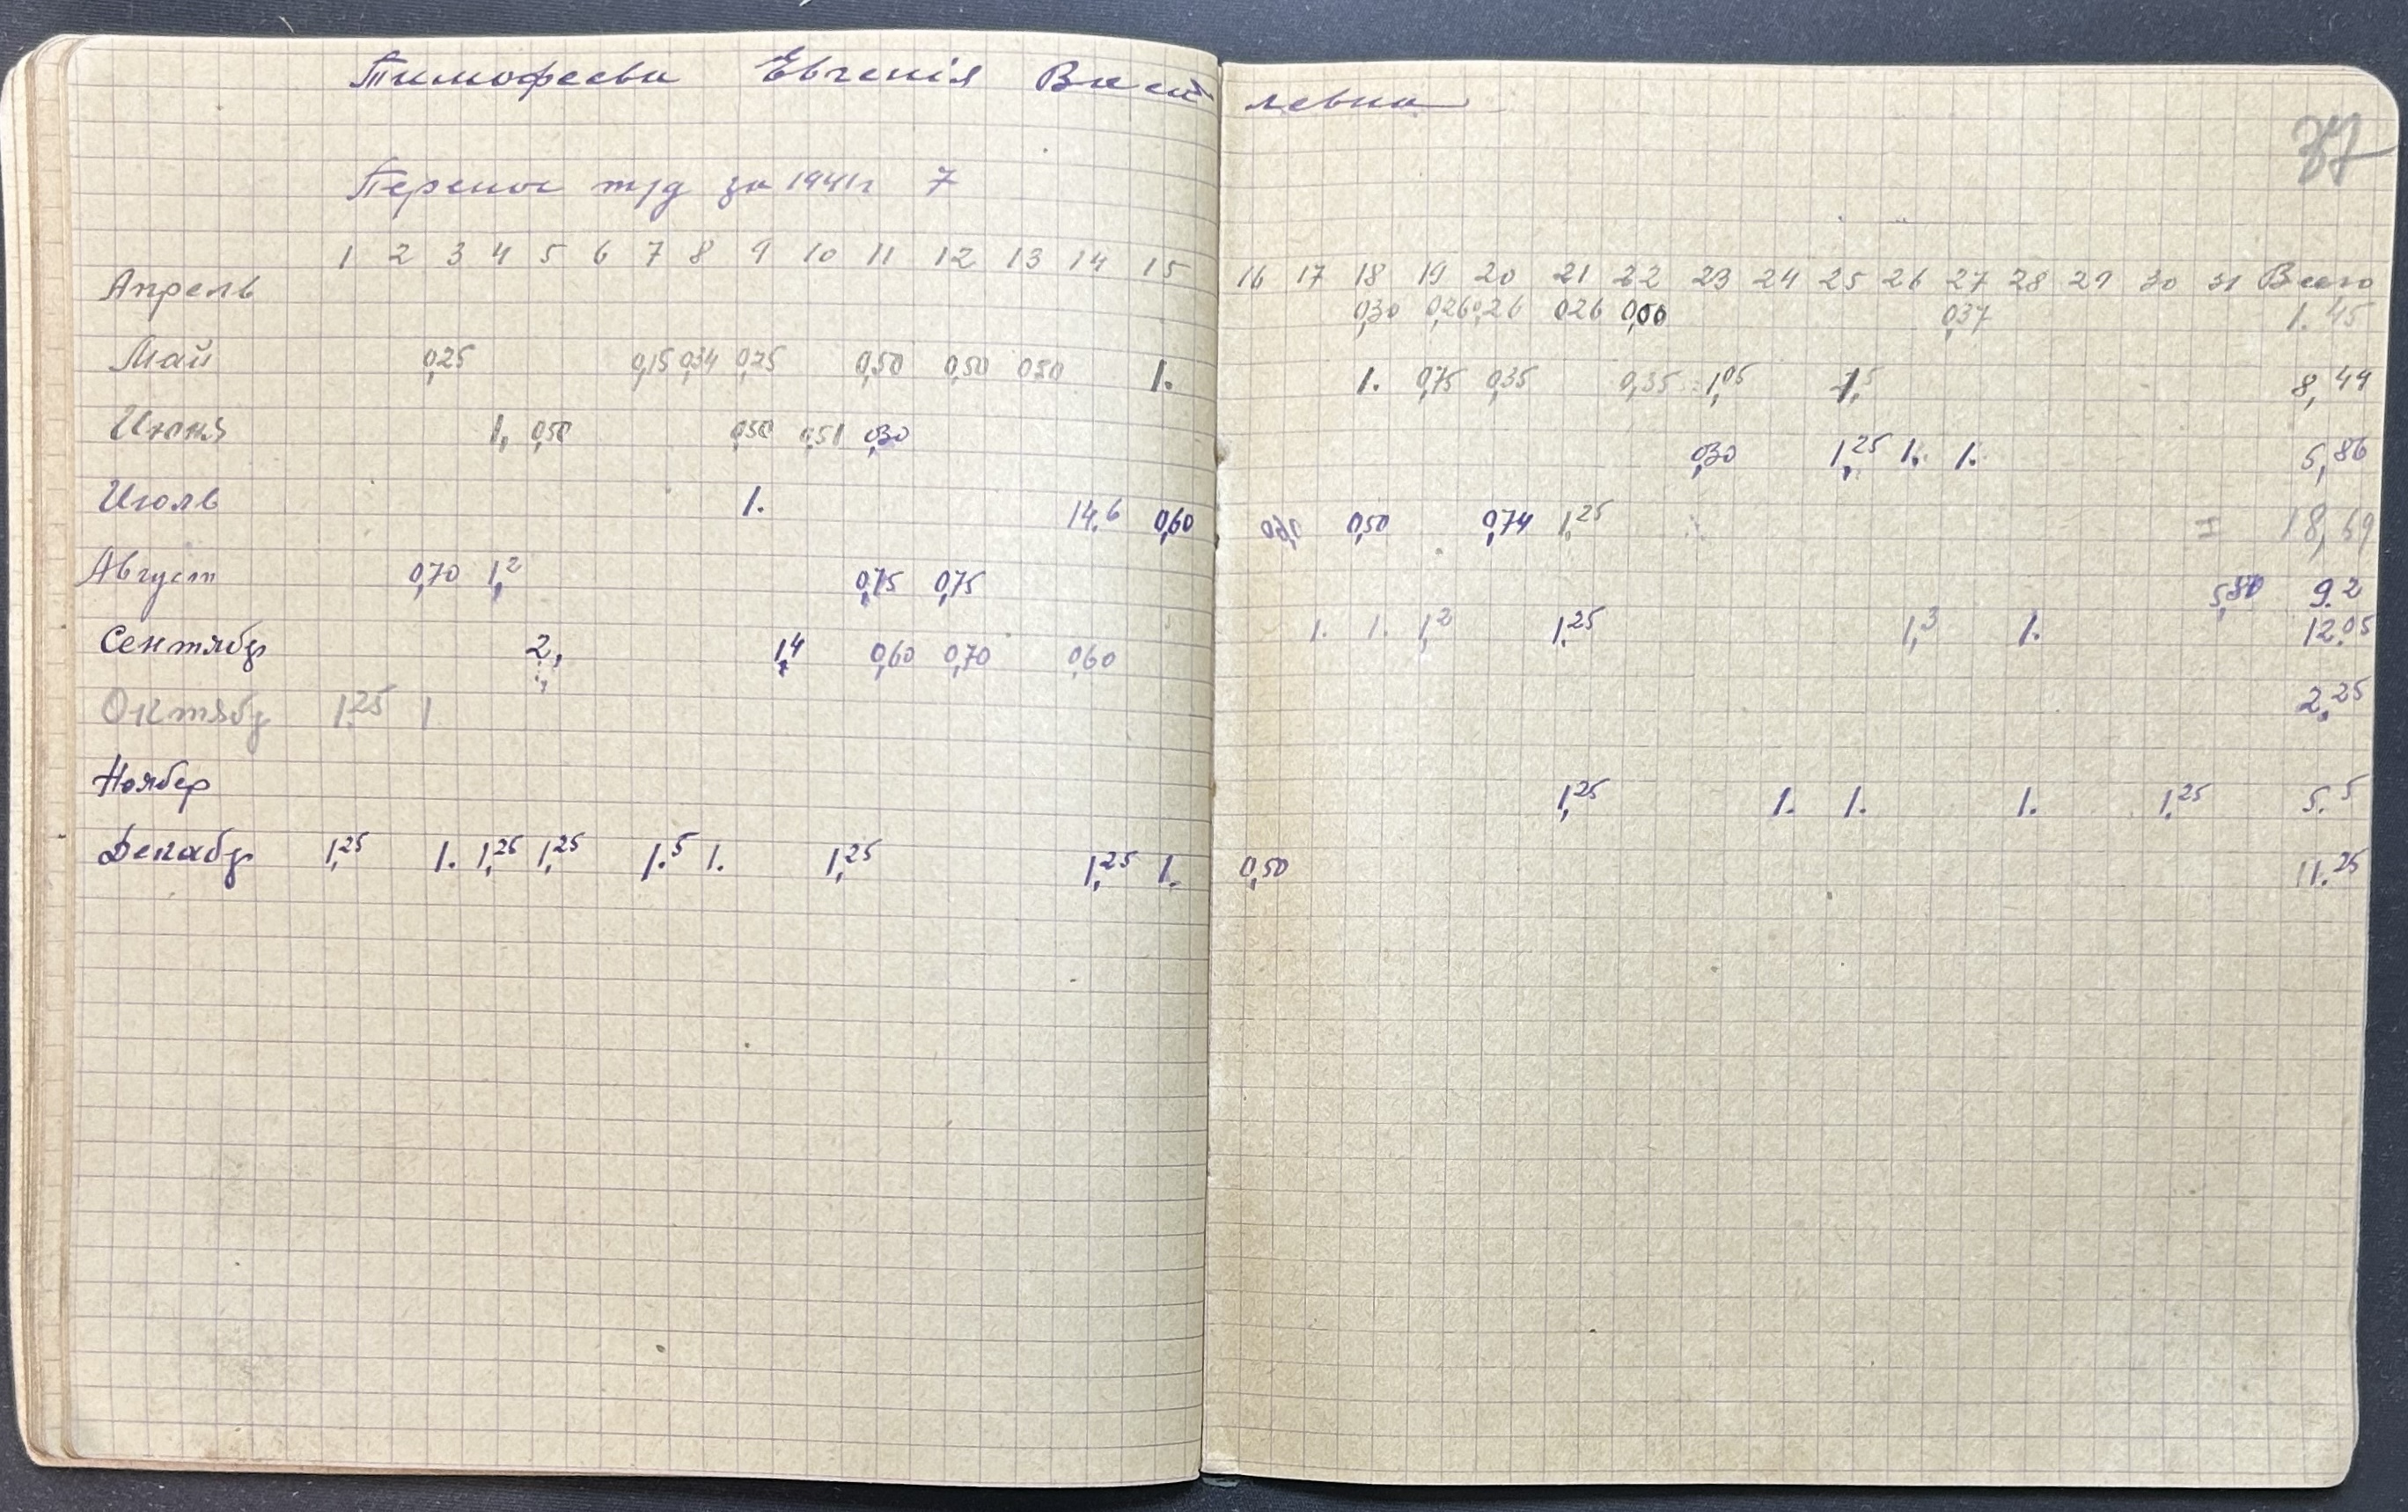 Тимофеева Евгенія Василевна
37
Перенос т/д за 1941г 7
1 2 3 4 5 6 7 8 9 10 11 12 13 14 15 16 17 18 19 20 21 22 23 24 25 26 27 28 29 30 31 Всего
Апрель 0,30 0,26 0,26 026 0,00 0,37 1.45
Май 0,25 0,15 0,34 0,75 0,50 0,50 050 1. 1. 0,75 0,35 0,35 1,05 1,5 8,44
Июня 1, 0,50 0,50 0,51 0,30 0,30 1,25 1. 1. 5,86
Июль 1. 14.6 0,60 0,50 0,74 1,25 18,69
Август 0,70 1,2 0,75 0,75 5,80 9.2
Сентябр 2, 1,4 0,60 0,70 0,60 1. 1. 1,2 1.25 1,3 1. 12.05
Октябр 1.25 1 2,25
Ноябер 1,25 1. 1. 1. 1,25 5.5
Декабр 1,25 1. 1,25 1,25 1.5 1. 1,25 1,25 1. 0,50 11.25